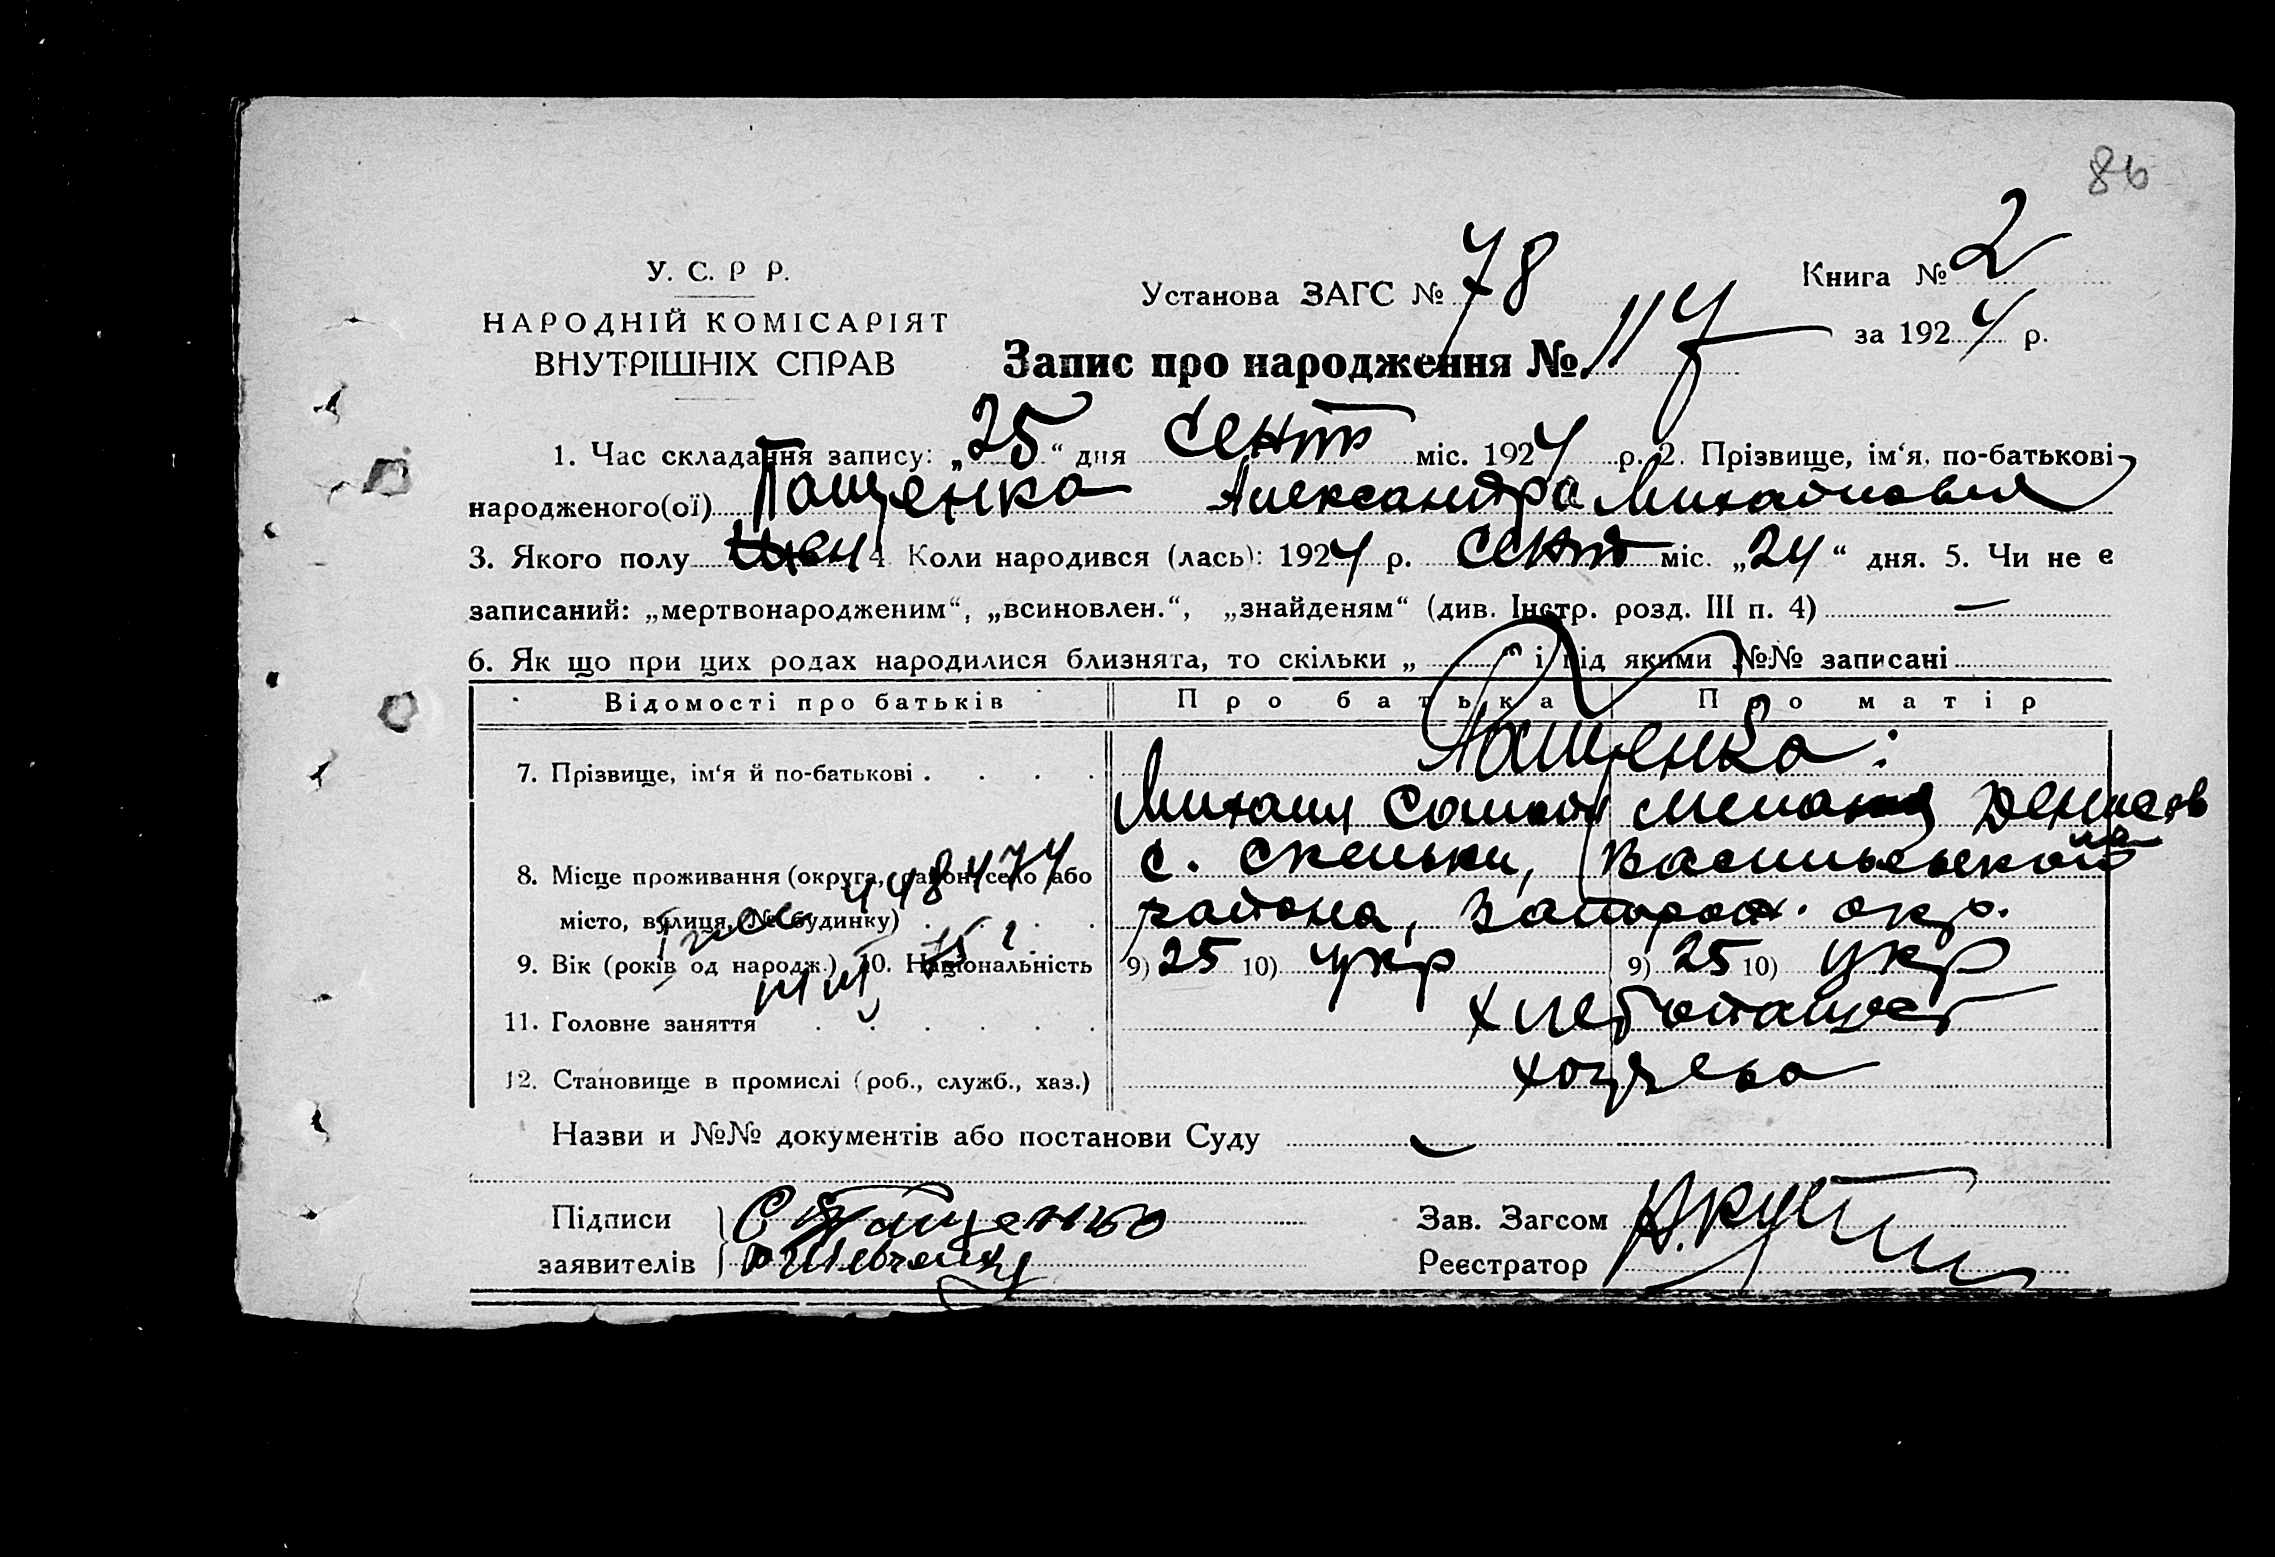 86
У. С. Р Р.
НАРОДНІЙ КОМІСАРІЯТ
ВНУТРІШНІХ СПРАВ
Установа ЗАГС № 78
Книга № 2
за 1924 р.
Запис про народження № 117
1. Час складання запису: „25“ дня Сент міс. 1924 р. 2. Прізвище, ім‘я, по-батькові
народженого(ої) Пащенко Александра Михайловна
3. Якого полу жен 4. Коли народився (лась): 1924 р. Сент міс. „24“ дня. 5. Чи не є
записаний: „мертвонародженим“, „всиновлен.“, „знайденям“ (див. Інстр. розд. III п. 4) —
6. Як що при цих родах народилися близнята, то скільки „ “ і під якими №№ записані
Відомості про батьків Про батька Про матір
7. Прізвище, ім‘я й по-батькові . . . . Пащенко:
Михаил Меланья Денисов
на
8. Місце проживання (округа, район, село або с. Скельки, Васильевской
місто, вулиця, № будинку) . . . . района, Запорож. окр.
448474
75 г.
9. Вік (років од народж.) 10. Національність 9) 25 10) укр 9) 25 10) укр
11. Головне заняття . . . . . . хлебопашест
12. Становище в промислі (роб., служб., хаз.) хозяева
Назви и №№ документів або постанови Суду —
Підписи С Пащенко
заявителів Шевченко
Зав. Загсом
Реєстратор